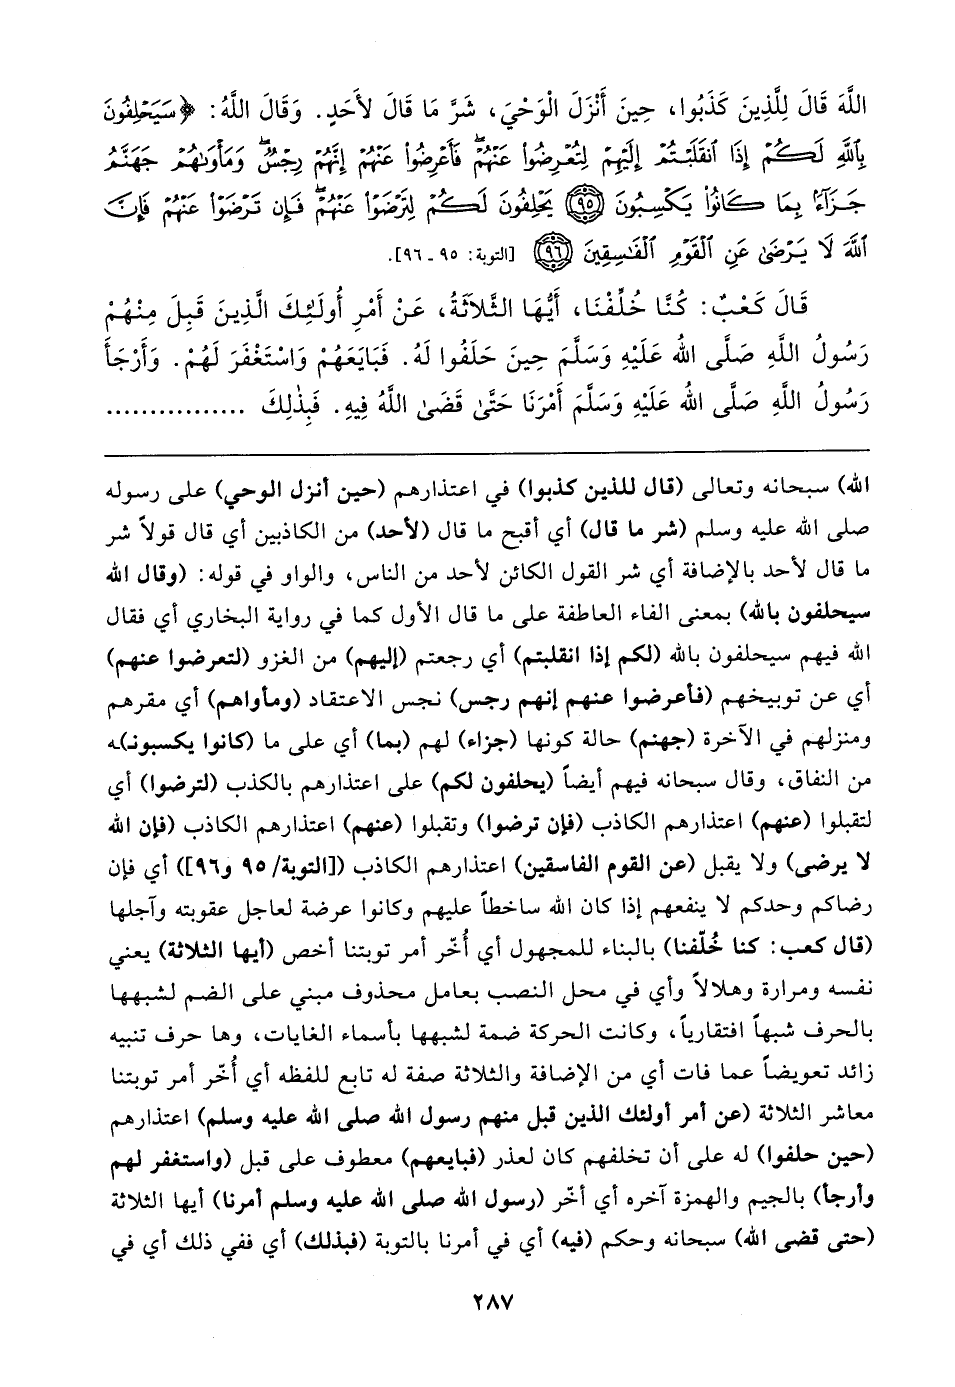 اللَّهَ قَالَ لِلَّذِينَ كَذَبُوا، حِينَ أَنْزَلَ الْوَحْيَ، شَرَّ مَا قَالَ لأَحَدٍ. وَقَالَ اللَّهُ: ﴿سَيَحْلِفُونَ
بِاللَّهِ لَكُمْ إِذَا انقَلَبْتُمْ إِلَيْهِمْ لِتُعْرِضُوا عَنْهُمْ فَأَعْرِضُوا عَنْهُمْ إِنَّهُمْ رِجْسٌ وَمَأْوَاهُمْ جَهَنَّمُ
جَزَاءً بِمَا كَانُوا يَكْسِبُونَ (٩٥) يَحْلِفُونَ لَكُمْ لِتَرْضَوْا عَنْهُمْ فَإِن تَرْضَوْا عَنْهُمْ فَإِنَّ
اللَّهَ لَا يَرْضَىٰ عَنِ الْقَوْمِ الْفَاسِقِينَ (٩٦) [التوبة: ٩٥ ـ ٩٦].
قَالَ كَعْبٌ: كُنَّا خُلِّفْنَا، أَيُّهَا الثَّلاَثَةُ، عَنْ أَمْرِ أُولَئِكَ الَّذِينَ قَبِلَ مِنْهُمْ
رَسُولُ اللَّهِ صَلَّى اللهُ عَلَيْهِ وَسَلَّمَ حِينَ حَلَفُوا لَهُ. فَبَايَعَهُمْ وَاسْتَغْفَرَ لَهُمْ. وَأَرْجَأَ
رَسُولُ اللَّهِ صَلَّى اللهُ عَلَيْهِ وَسَلَّمَ أَمْرَنَا حَتَّىٰ قَضَىٰ اللَّهُ فِيهِ. فَبِذٰلِكَ ................
الله) سبحانه وتعالى (قال للذين كذبوا) في اعتذارهم (حين أنزل الوحي) على رسوله
صلى الله عليه وسلم (شر ما قال) أي أقبح ما قال (لأحد) من الكاذبين أي قال قولاً شر
ما قال لأحد بالإضافة أي شر القول الكائن لأحد من الناس، والواو في قوله: (وقال الله
سيحلفون بالله) بمعنى الفاء العاطفة على ما قال الأول كما في رواية البخاري أي فقال
الله فيهم سيحلفون بالله (لكم إذا انقلبتم) أي رجعتم (إليهم) من الغزو (لتعرضوا عنهم)
أي عن توبيخهم (فأعرضوا عنهم إنهم رجس) نجس الاعتقاد (ومأواهم) أي مقرهم
ومنزلهم في الآخرة (جهنم) حالة كونها (جزاء) لهم (بما) أي على ما (كانوا يكسبونـ)ـه
من النفاق، وقال سبحانه فيهم أيضاً (يحلفون لكم) على اعتذارهم بالكذب (لترضوا) أي
لتقبلوا (عنهم) اعتذارهم الكاذب (فإن ترضوا) وتقبلوا (عنهم) اعتذارهم الكاذب (فإن الله
لا يرضى) ولا يقبل (عن القوم الفاسقين) اعتذارهم الكاذب ([التوبة/ ٩٥ و٩٦]) أي فإن
رضاكم وحدكم لا ينفعهم إذا كان الله ساخطاً عليهم وكانوا عرضة لعاجل عقوبته وآجلها
(قال كعب: كنا خُلّفنا) بالبناء للمجهول أي أُخّر أمر توبتنا أخص (أيها الثلاثة) يعني
نفسه ومرارة وهلالاً وأي في محل النصب بعامل محذوف مبني على الضم لشبهها
بالحرف شبهاً افتقارياً، وكانت الحركة ضمة لشبهها بأسماء الغايات، وها حرف تنبيه
زائد تعويضاً عما فات أي من الإضافة والثلاثة صفة له تابع للفظه أي أُخّر أمر توبتنا
معاشر الثلاثة (عن أمر أولئك الذين قبل منهم رسول الله صلى الله عليه وسلم) اعتذارهم
(حين حلفوا) له على أن تخلفهم كان لعذر (فبايعهم) معطوف على قبل (واستغفر لهم
وأرجأ) بالجيم والهمزة آخره أي أخّر (رسول الله صلى الله عليه وسلم أمرنا) أيها الثلاثة
(حتى قضى الله) سبحانه وحكم (فيه) أي في أمرنا بالتوبة (فبذلك) أي ففي ذلك أي في
٢٨٧